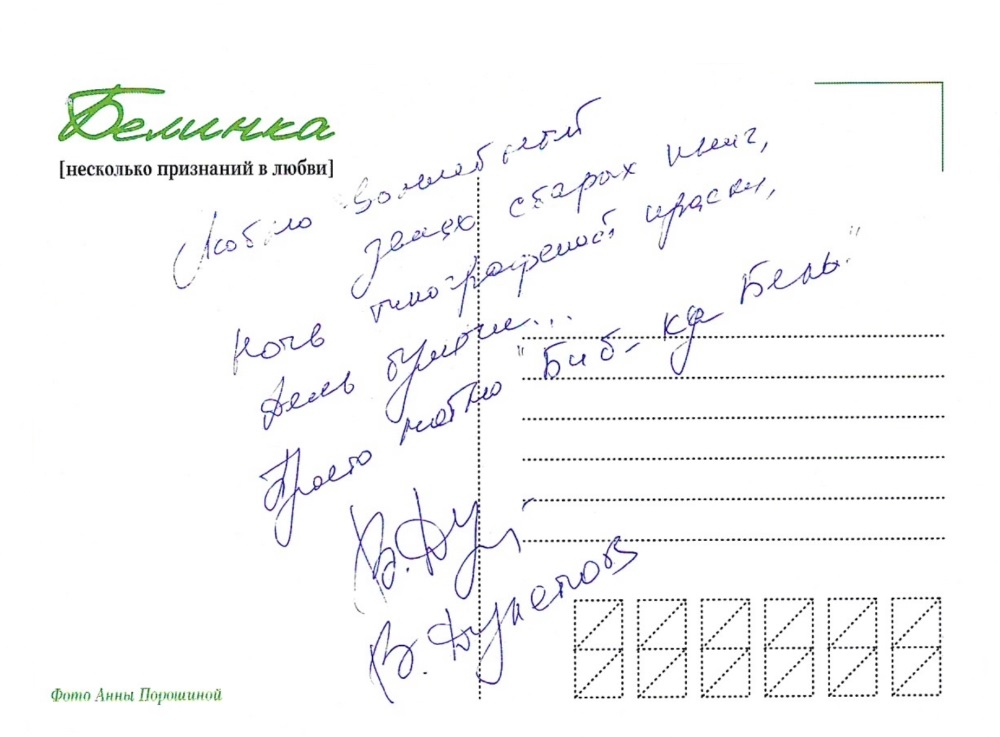 Белинка
[несколько признаний в любви]
Люблю волшебный
запах старых книг,
типографской краски,
Просто люблю "Биб-ка Бель."
В. Ду
В.
Фото Анны Порошиной